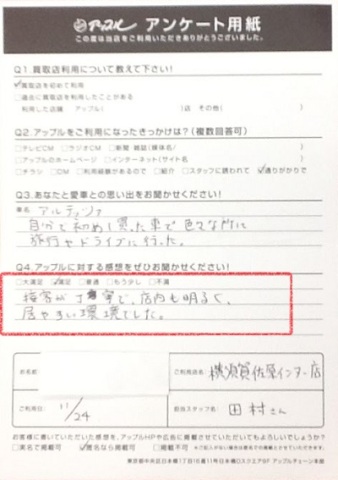 アップル アンケート用紙
この度は当店をご利用いただきありがとうございました。
Q1.買取店利用について教えて下さい!
☑買取店を初めて利用
□過去に買取店を利用したことがある
利用した店舗 アップル( )店 その他( )
Q2.アップルをご利用になったきっかけは?(複数回答可)
□テレビCM □ラジオCM □新聞・雑誌(媒体名/ )
□アップルのホームページ □インターネット(サイト名 )
□チラシ □DM □利用経験があるので □紹介 □スタッフに誘われて ☑通りがかりで
Q3.あなたと愛車との思い出をお聞かせください!
車名/アルテッツァ
自分で初めて買った車で色々な所に
旅行やドライブに行った。
Q4.アップルに対する感想をぜひお聞かせください!
□大満足 ☑満足 □普通 □もう少し □不満
接客が丁寧で、店内も明るく、
居やすい環境でした。
お名前
ご利用店名 横須賀佐原インター店
ご利用日 11/24
担当スタッフ名 田村さん
お客様に書いていただいた感想を、アップルHPや広告に掲載させていただいてもよろしいでしょうか?
□実名で掲載可 ☑匿名なら掲載可 □掲載不可